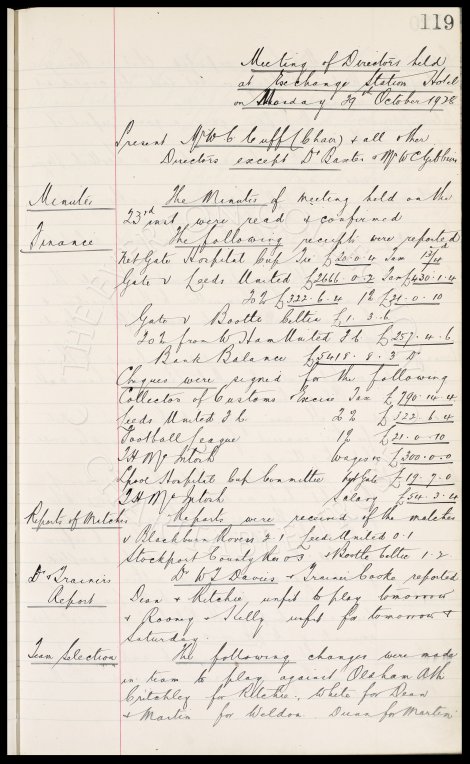 119
Meeting of Directors held
at Exchange Station Hotel
on Monday 29th October 1928
Present Mr W C Cuff (Chair) & all other
Directors except Dr Baxter & Mr W C Gibbins
Minutes
The Minutes of meeting held on the
23rd inst were read & confirmed
Finance
The following receipts were reported
Net Gate Hospital Cup Tie £20.0.4 Tax
Gate v Leeds United £2666.0.2 Tax £430.1.4
20% £322.6.4 1% £21.0.10
Gate v Bootle Celtic £1.3.6
20% from W Ham United F.C. £257.4.6
Bank Balance £5418.8.3
Cheques were signed for the following
Collector of Customs & Excise Tax £790.14.4
Leeds United F.C. 20% £322.6.4
Football League 1% £21.0.10
T H McIntosh wages &c £300.0.0
Lpool Hospital Cup Committee Gate £19.7.0
T H McIntosh Salary £54.3.4
Reports of Matches
Reports were received of the matches
v Blackburn Rovers 2.1 Leeds United 0.1
Stockport County Res 0.3 & Bootle Celtic 1.2.
Dr & Trainers
Report
Dr W J Davies & Trainer Cooke reported
Dean & Ritchie unfit to play tomorrow
& Rooney & Kelly unfit for tomorrow &
Saturday.
Team Selection
The following changes were made
in team to play against Oldham Ath
Critchley for Ritchie, White for Dean
& Martin for Weldon. Dunn for Martin